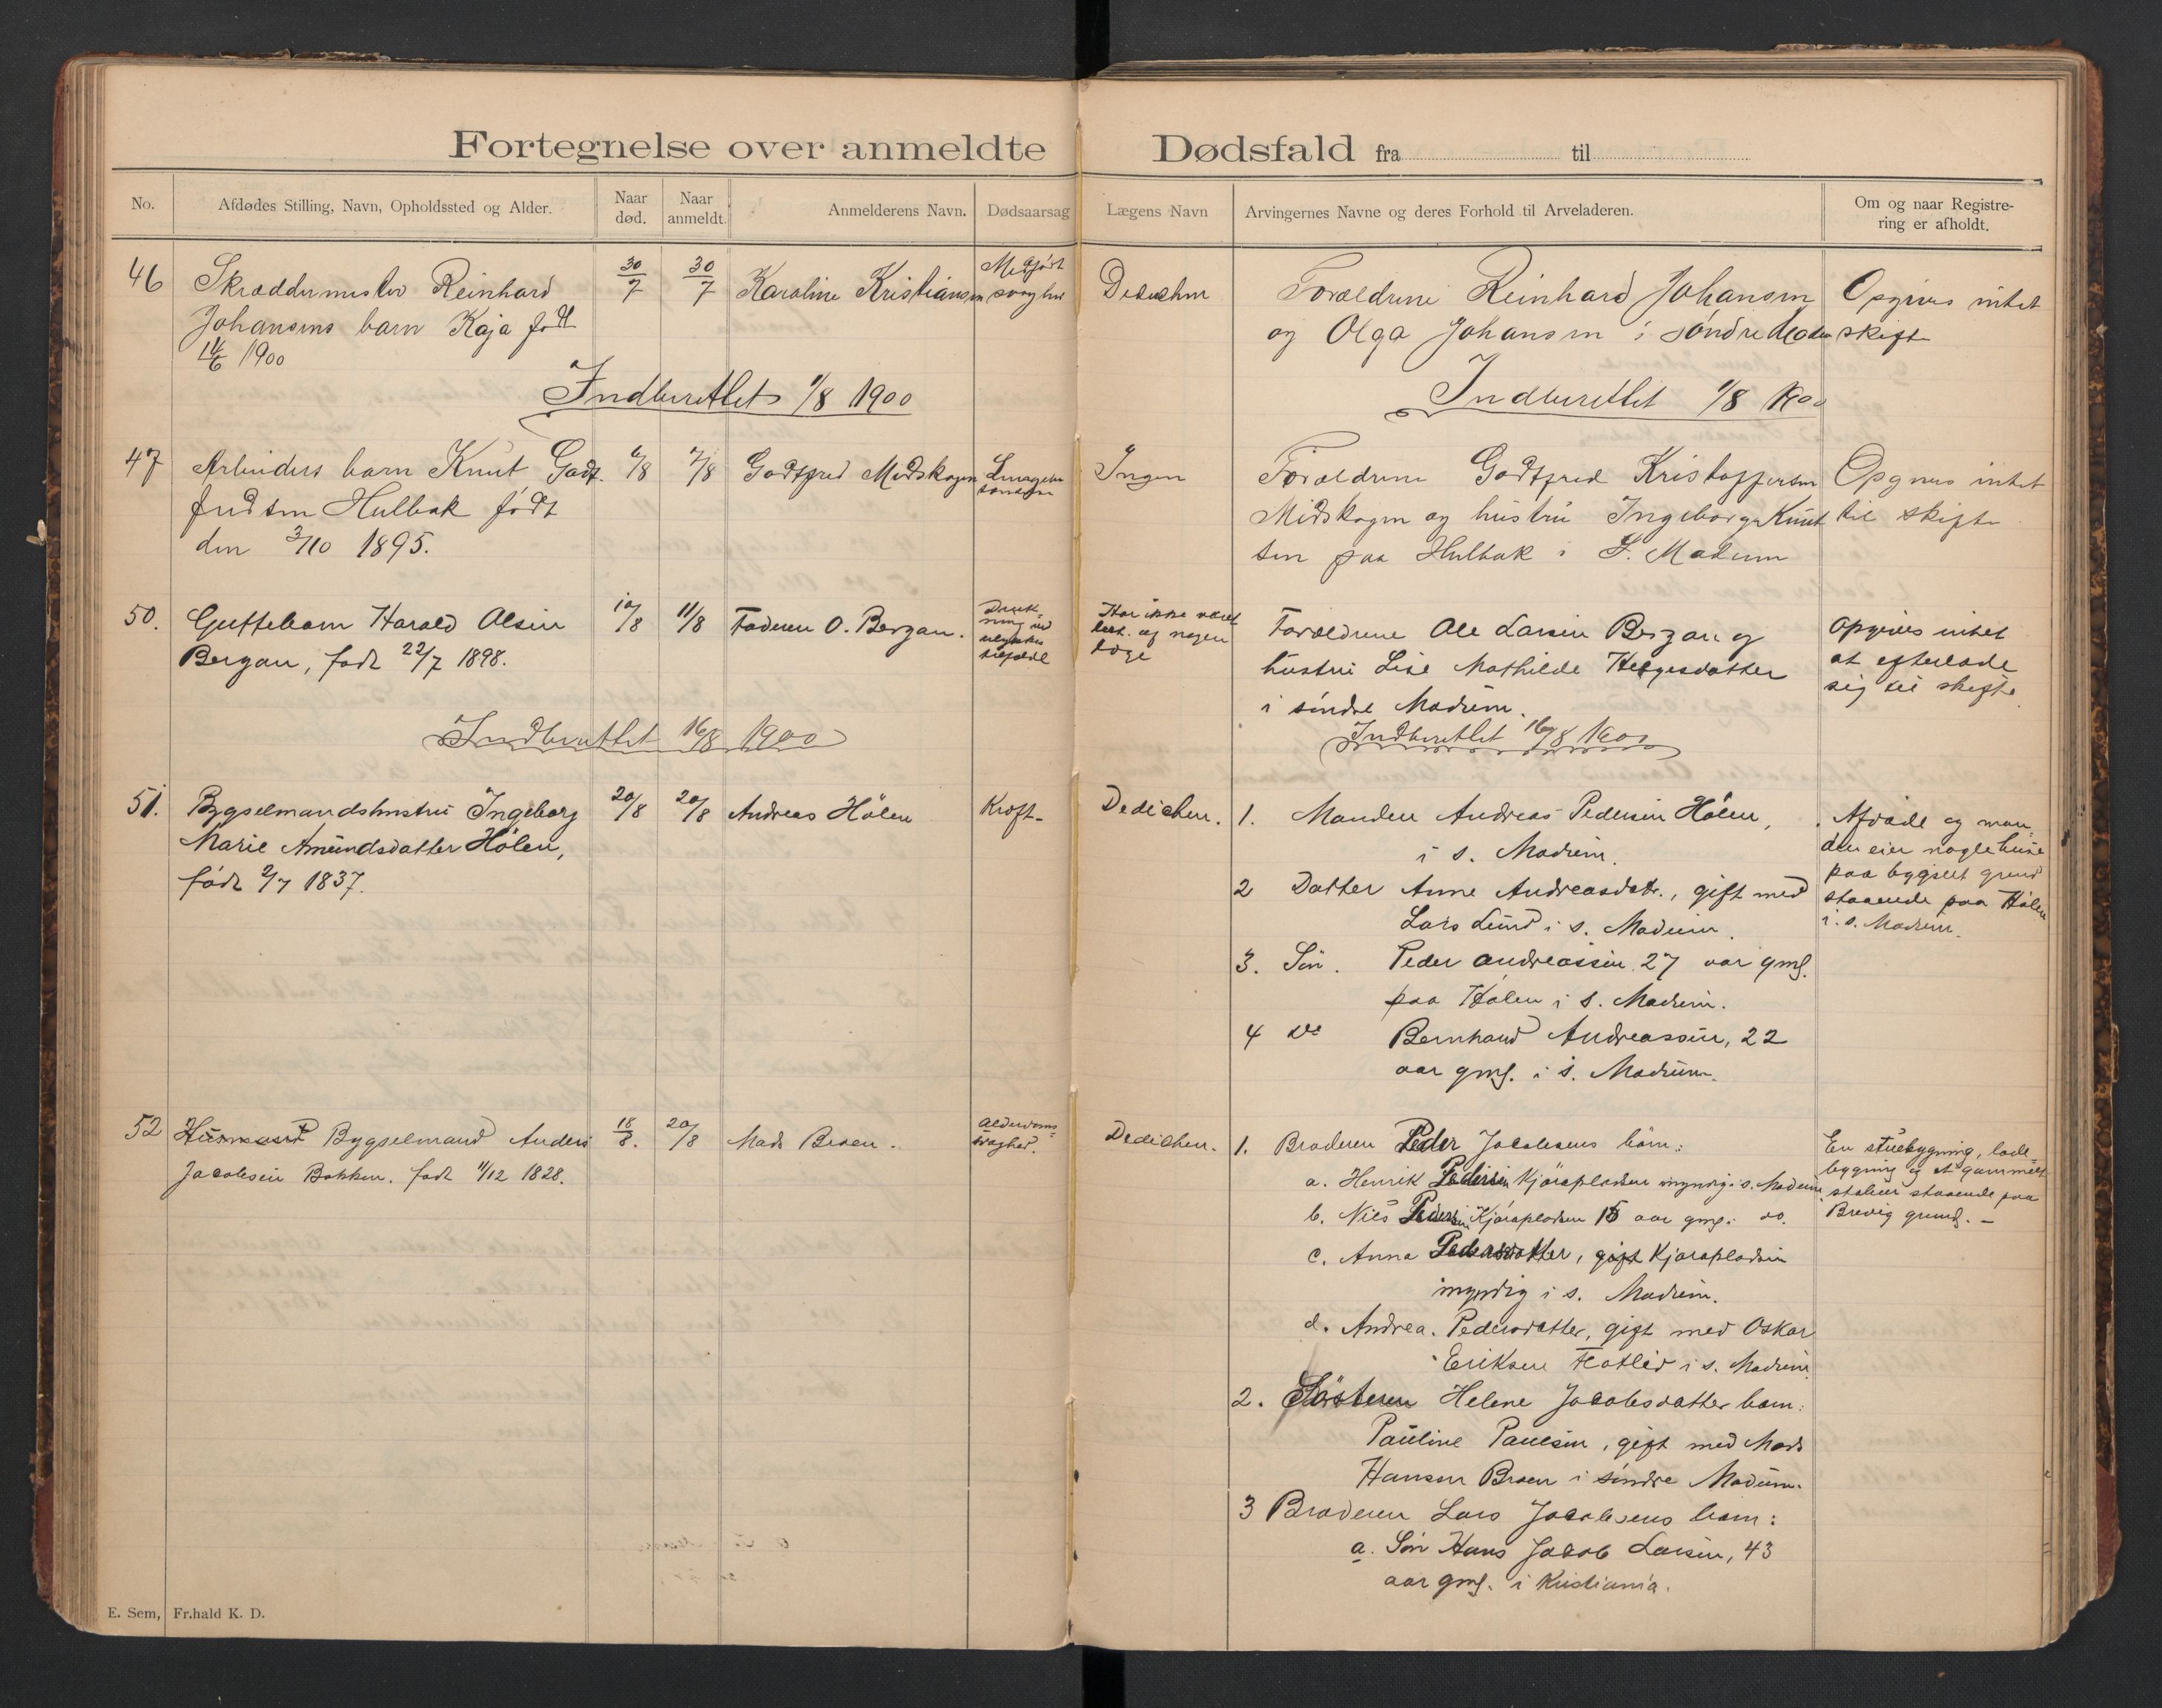 Fortegnelse over anmeldte Dødsfald fra til
No. Afdødes Stilling, Navn, Opholdssted og Alder. Naar død. Naar anmeldt. Anmelderens Navn. Dødsaarsag Lægens Navn Arvingernes Navne og deres Forhold til Arveladeren. Om og naar Registrering er afholdt.
46 Skræddermester Reinhard 30/7 30/7 Karoline Kristiansen Medfødt svaghed Dedichen Forældrene Reinhard Johansen Opgives intet
Johansens barn Kaja født og Olga Johansen i søndre Modum skifte
14/6 1900
Indberettet 1/8 1900 Indberettet 1/8 1900
47 Arbeiders barn Knut Godt- 6/8 7/8 Godtfred Midskogen Ingen Forældrene Godtfred Kristoffersen Opgives intet
fredsen Hulbak født Midskogen og hustru Ingeborg Knut til skifte
den 3/10 1895. sen paa Hulbak i S. Modum
50. Guttebarn Harald Olsen 10/8 11/8 Faderen O. Bergan. Druk-
ning ved
ulykkes
tilfælde
Har ikke været
beh. af nogen
læge
Forældrene Ole Larsen Bergan og Opgives intet
Bergan, født 22/7 1898. hustru Lise Mathilde Helgesdatter at efterlade
i søndre Modum. sig til skifte
Indberettet 16/8 1900 Indberettet 16/8 1900
51. Bygselmandshustru Ingeborg 20/8 20/8 Andreas Hölen Kræft- Dedichen. 1. Manden Andreas Pedersen Hölen,
Marie Amundsdatter Hölen, i s. Modum.
født 2/7 1837.
2 Datter Anne Andreasdatr., gift med
Lars Lund i s. Modum.
3. Søn. Peder Andreassen 27 aar gml.
paa Hölen i s. Modum.
4 do Bernhard Andreassen, 22
aar gml. i s. Modum.
Afdøde og man-
den eier nogle huse
paa bygslet grund
staaende paa Hölen
i s. Modum.
52 Husmand Bygselmand Anders 18/8. 20/8 Mads Braen. Alderdoms-
svaghed.
Dedichen. 1. Broderen Peder Jacobsens børn:
Jacobsen Bakken. født 4/12 1828.
a. Henrik Pedersen Kjøraplassen myndig i s. Modum.
b. Niels Pedersen Kjøraplassen 15 aar gml. do.
c. Anna Pedersdatter, gift Kjøraplassen
myndig i s. Modum.
d. Andrea. Pedersdatter, gift med Oskar
Eriksen Flatlid i s. Modum.
2. Søsteren Helene Jacobsdatter barn:
Pauline Paulsen, gift med Mads
Hansen Braen i søndre Modum.
3 Broderen Lars Jacobsens barn:
a. Søn Hans Jacob Larsen, 43
aar gml. i Kristiania.
En stuebygning, lade-
bygning og et gammelt
stabur staaende paa
Brevig grund. -
E. Sem, Fr.hald K. D.